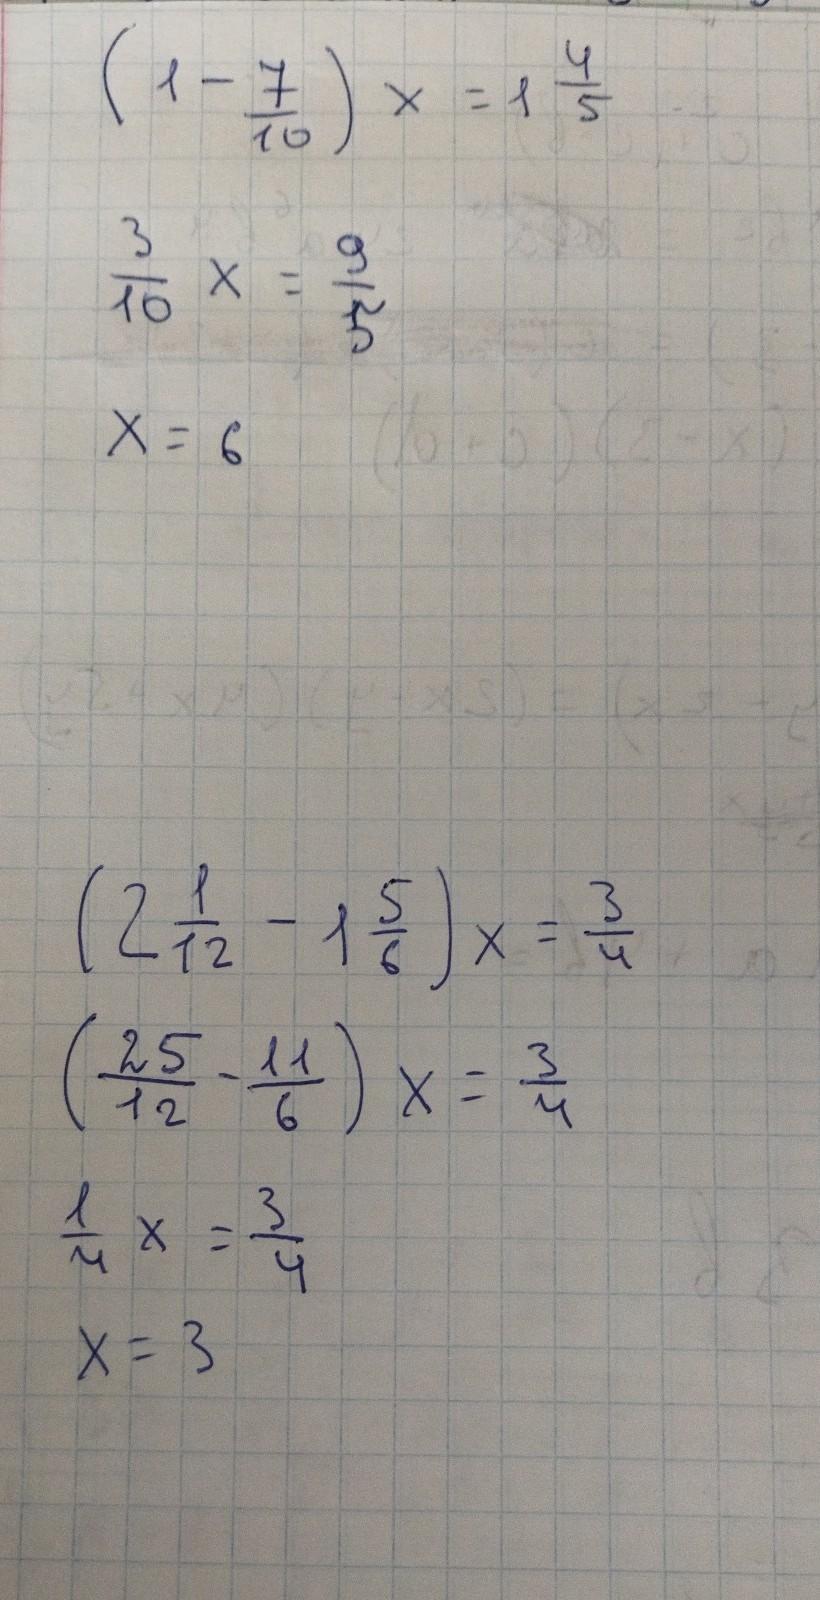 (1 - 7/10) x = 1 4/5
3/10 x = 9/5
x = 6
(2 1/12 - 1 5/6) x = 3/4
(25/12 - 11/6) x = 3/4
1/4 x = 3/4
x = 3